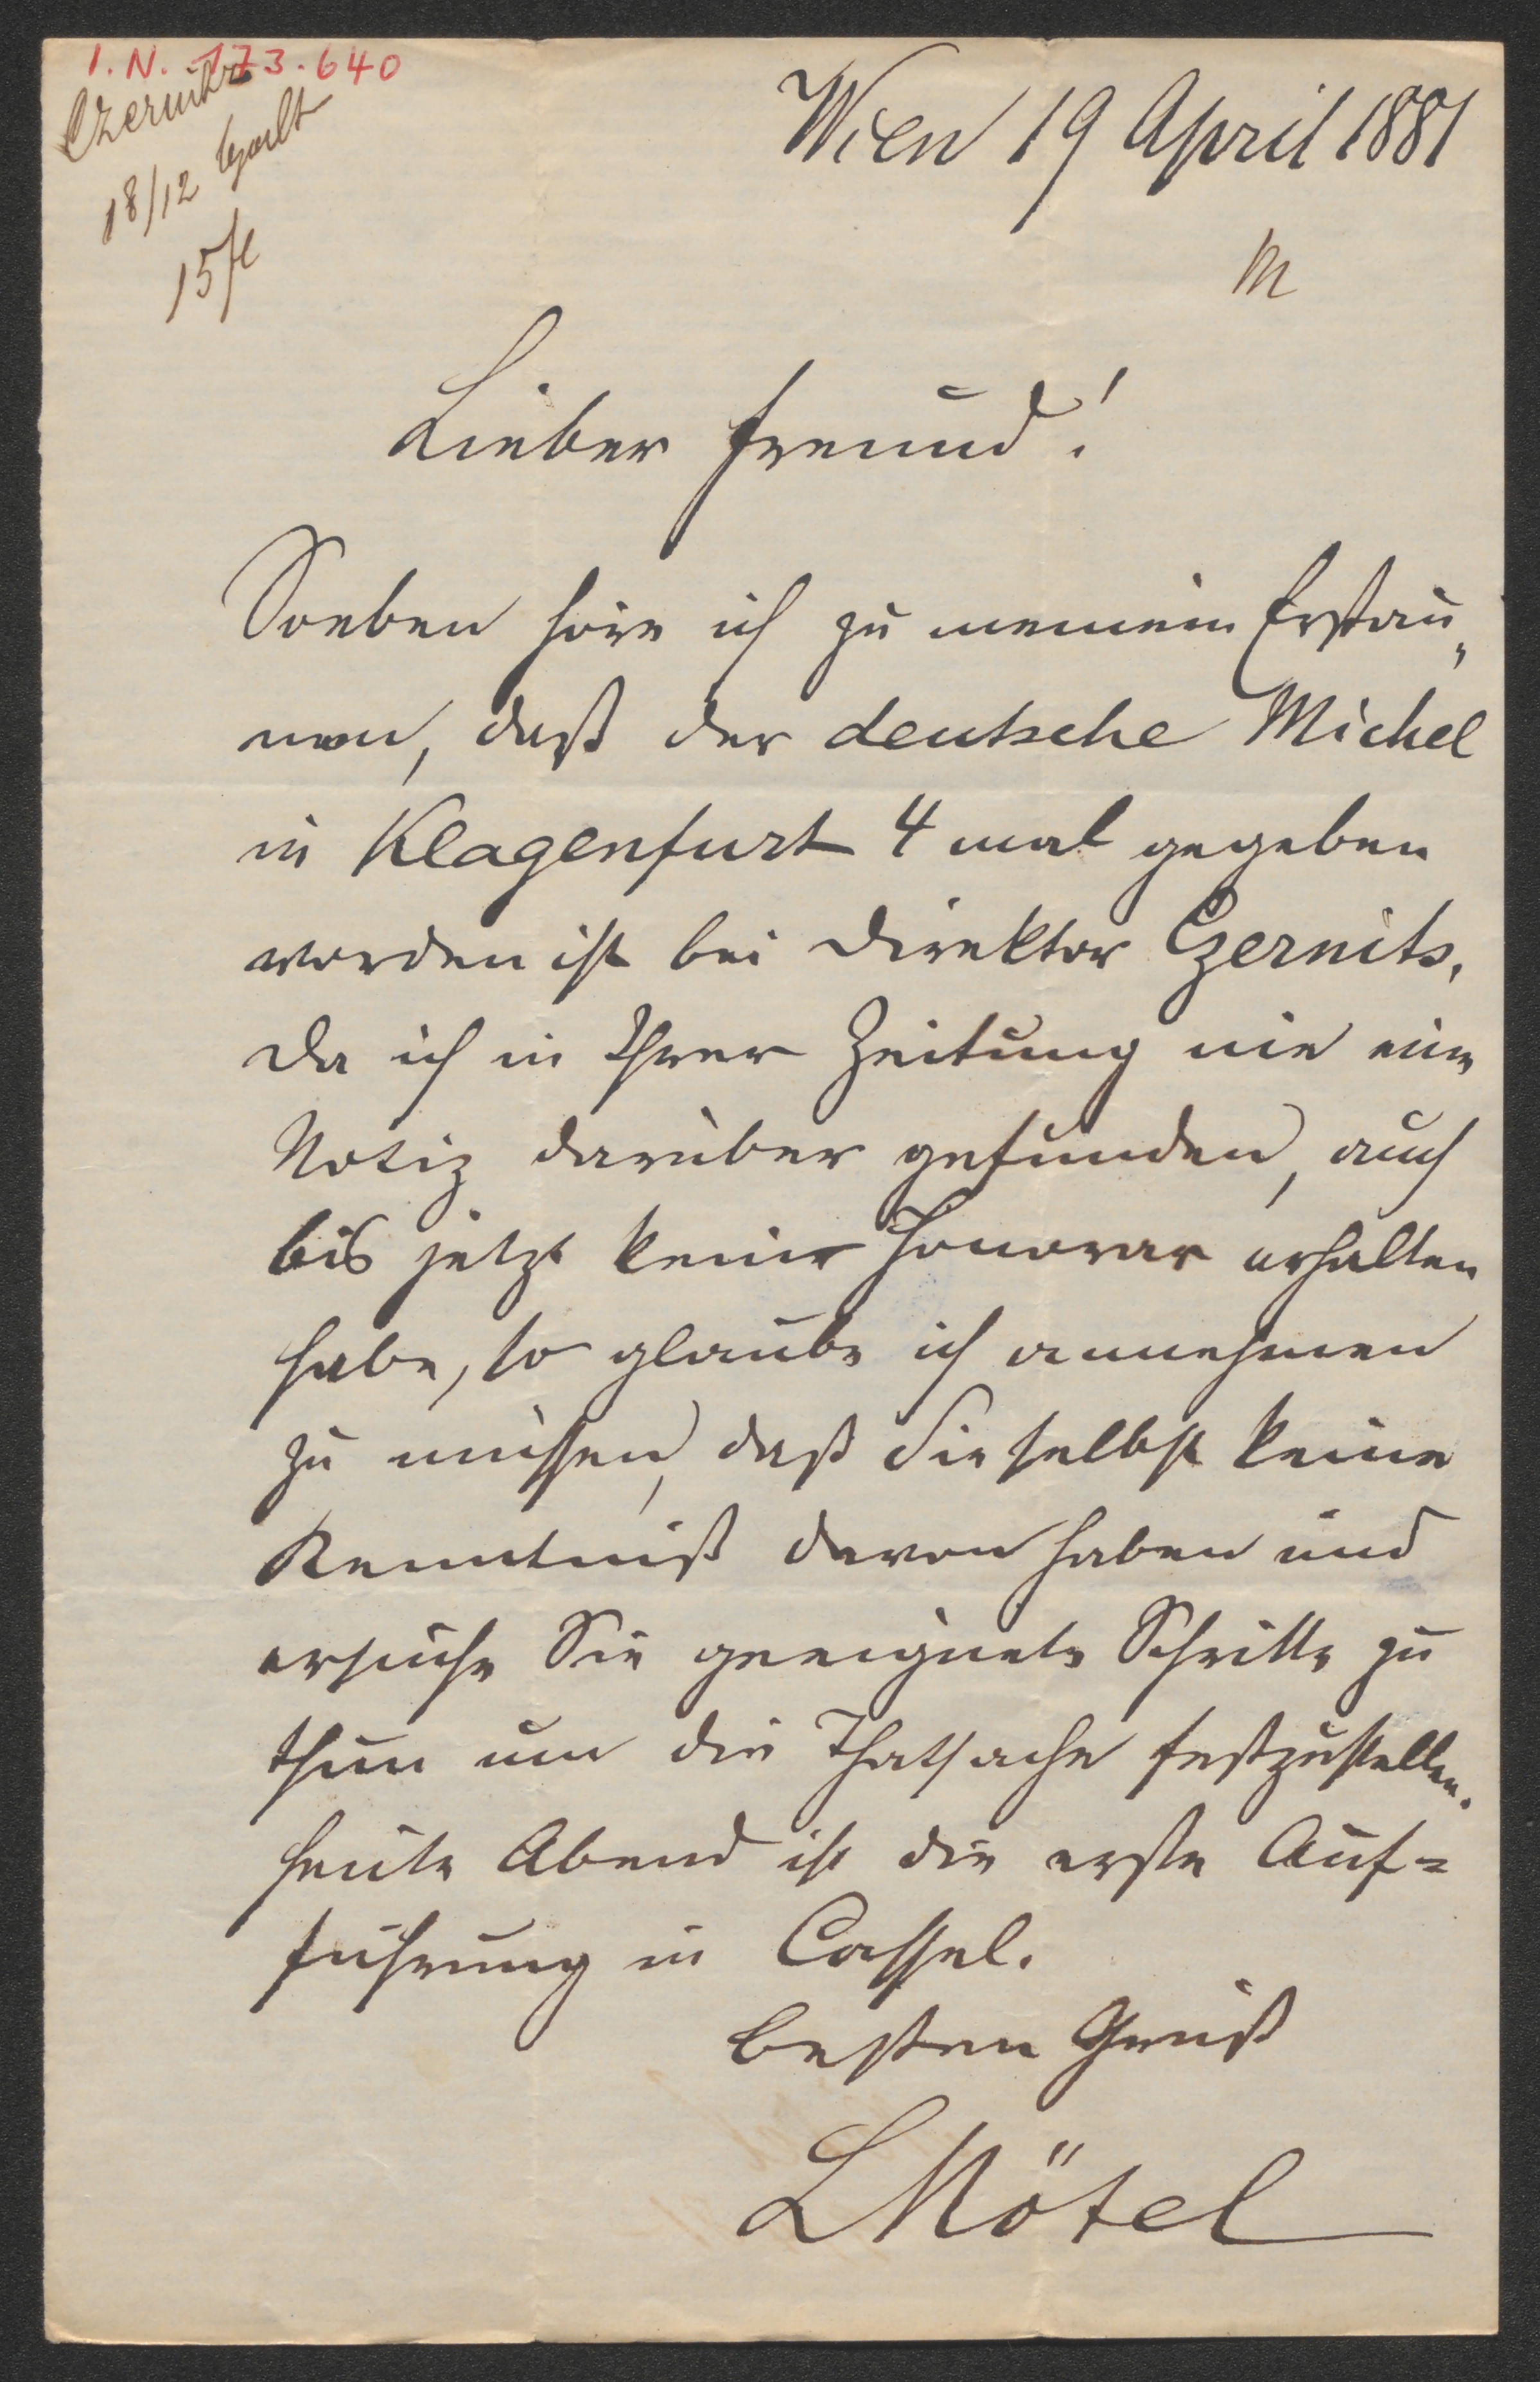 I.N. 173.640
Czernits
18/12
15 fl
Wien 19 April 1881
M
Lieber Freund!
Soeben höre ich zu meinem Erstau„
nen, daß der deutsche Michel
in Klagenfurt 4 mal gegeben
worden ist bei Direktor Czernits,
da ich in Ihrer Zeitung nie eine
Notiz darüber gefunden, auch
bis jetzt keine Honorar erhalten
habe, so glaube ich annehmen
zu müssen, daß Sie selbst keine
Kenntniß davon haben und
ersuche Sie geeignete Schritte zu
thun um die Thatsache festzustellen.
Heute Abend ist die erste Auf=
führung in Cassel.
Besten Gruß
LNötel